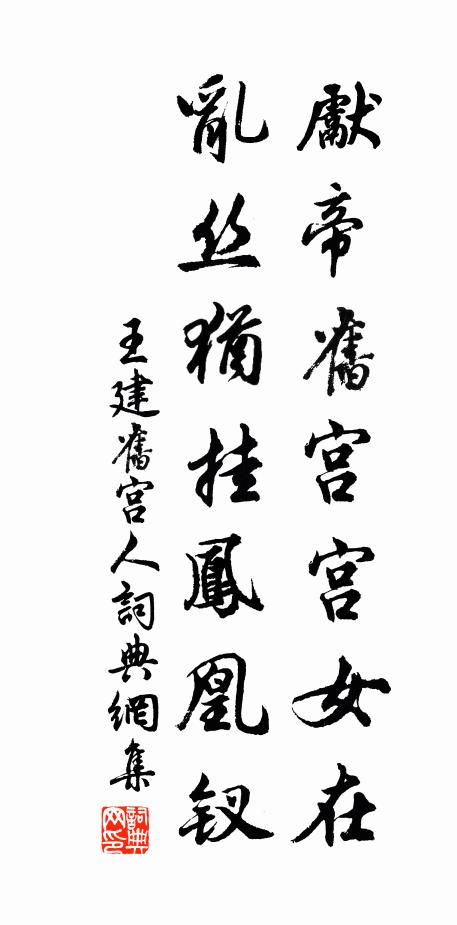 獻帝舊宮宮女在
亂丝猶挂鳳凰钗
王建舊宮人詞典網集
詞典网印